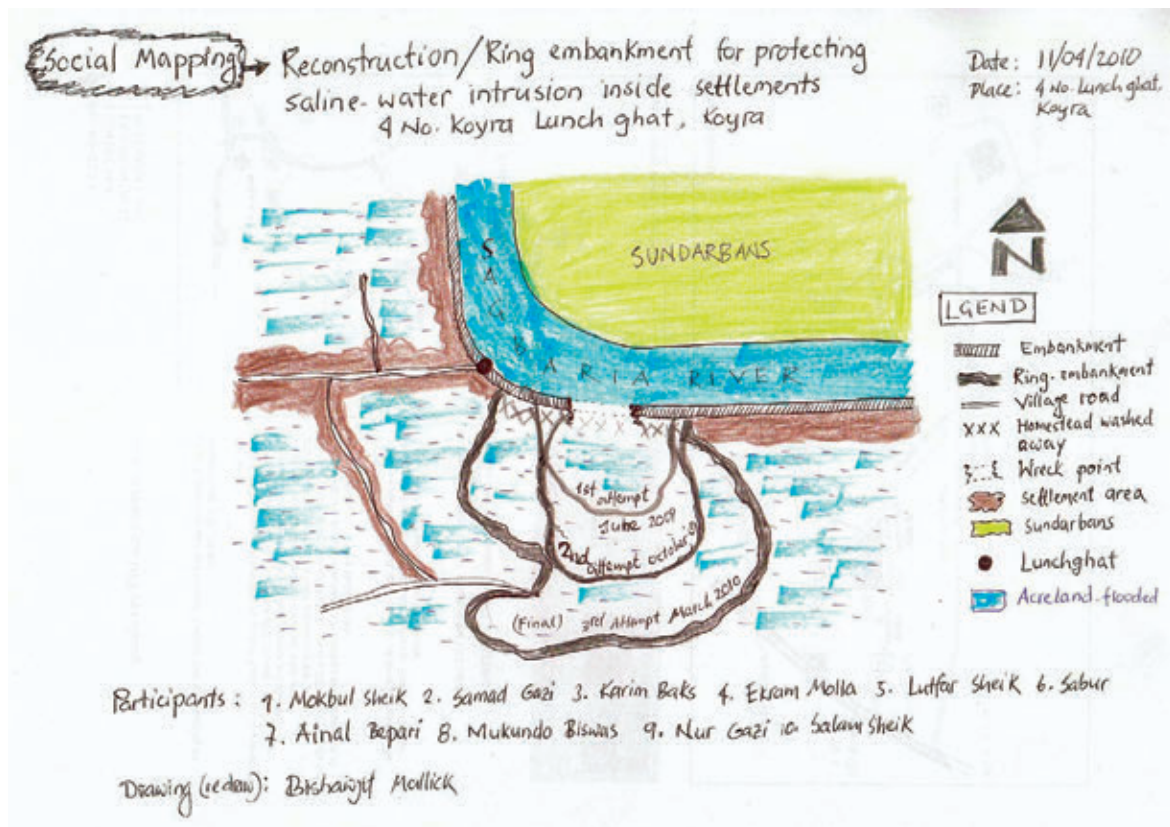 Social Mapping → Reconstruction/Ring embankment for protecting
saline-water intrusion inside settlements
4 No. Koyra Lunch ghat, Koyra
Date: 11/04/2010
Place: 4 No. Lunch ghat,
Koyra
SUNDARBANS
SAGBARIA RIVER
N
LGEND
Embankment
Ring-embankment
Village road
xxx Homestead washed
away
Wreck point
settlement area
Sundarbans
Lunchghat
Acreland flooded
1st attempt
June 2009
2nd attempt october 09
(Final) 3rd Attempt March 2010
Participants: 1. Mokbul Sheik 2. Samad Gazi 3. Karim Baks 4. Ekram Molla 5. Lutfar Sheik 6. Sabur
7. Ainal Bepari 8. Mukundo Biswas 9. Nur Gazi 10. Salam Sheik
Drawing (redraw): Bishawjit Mallick